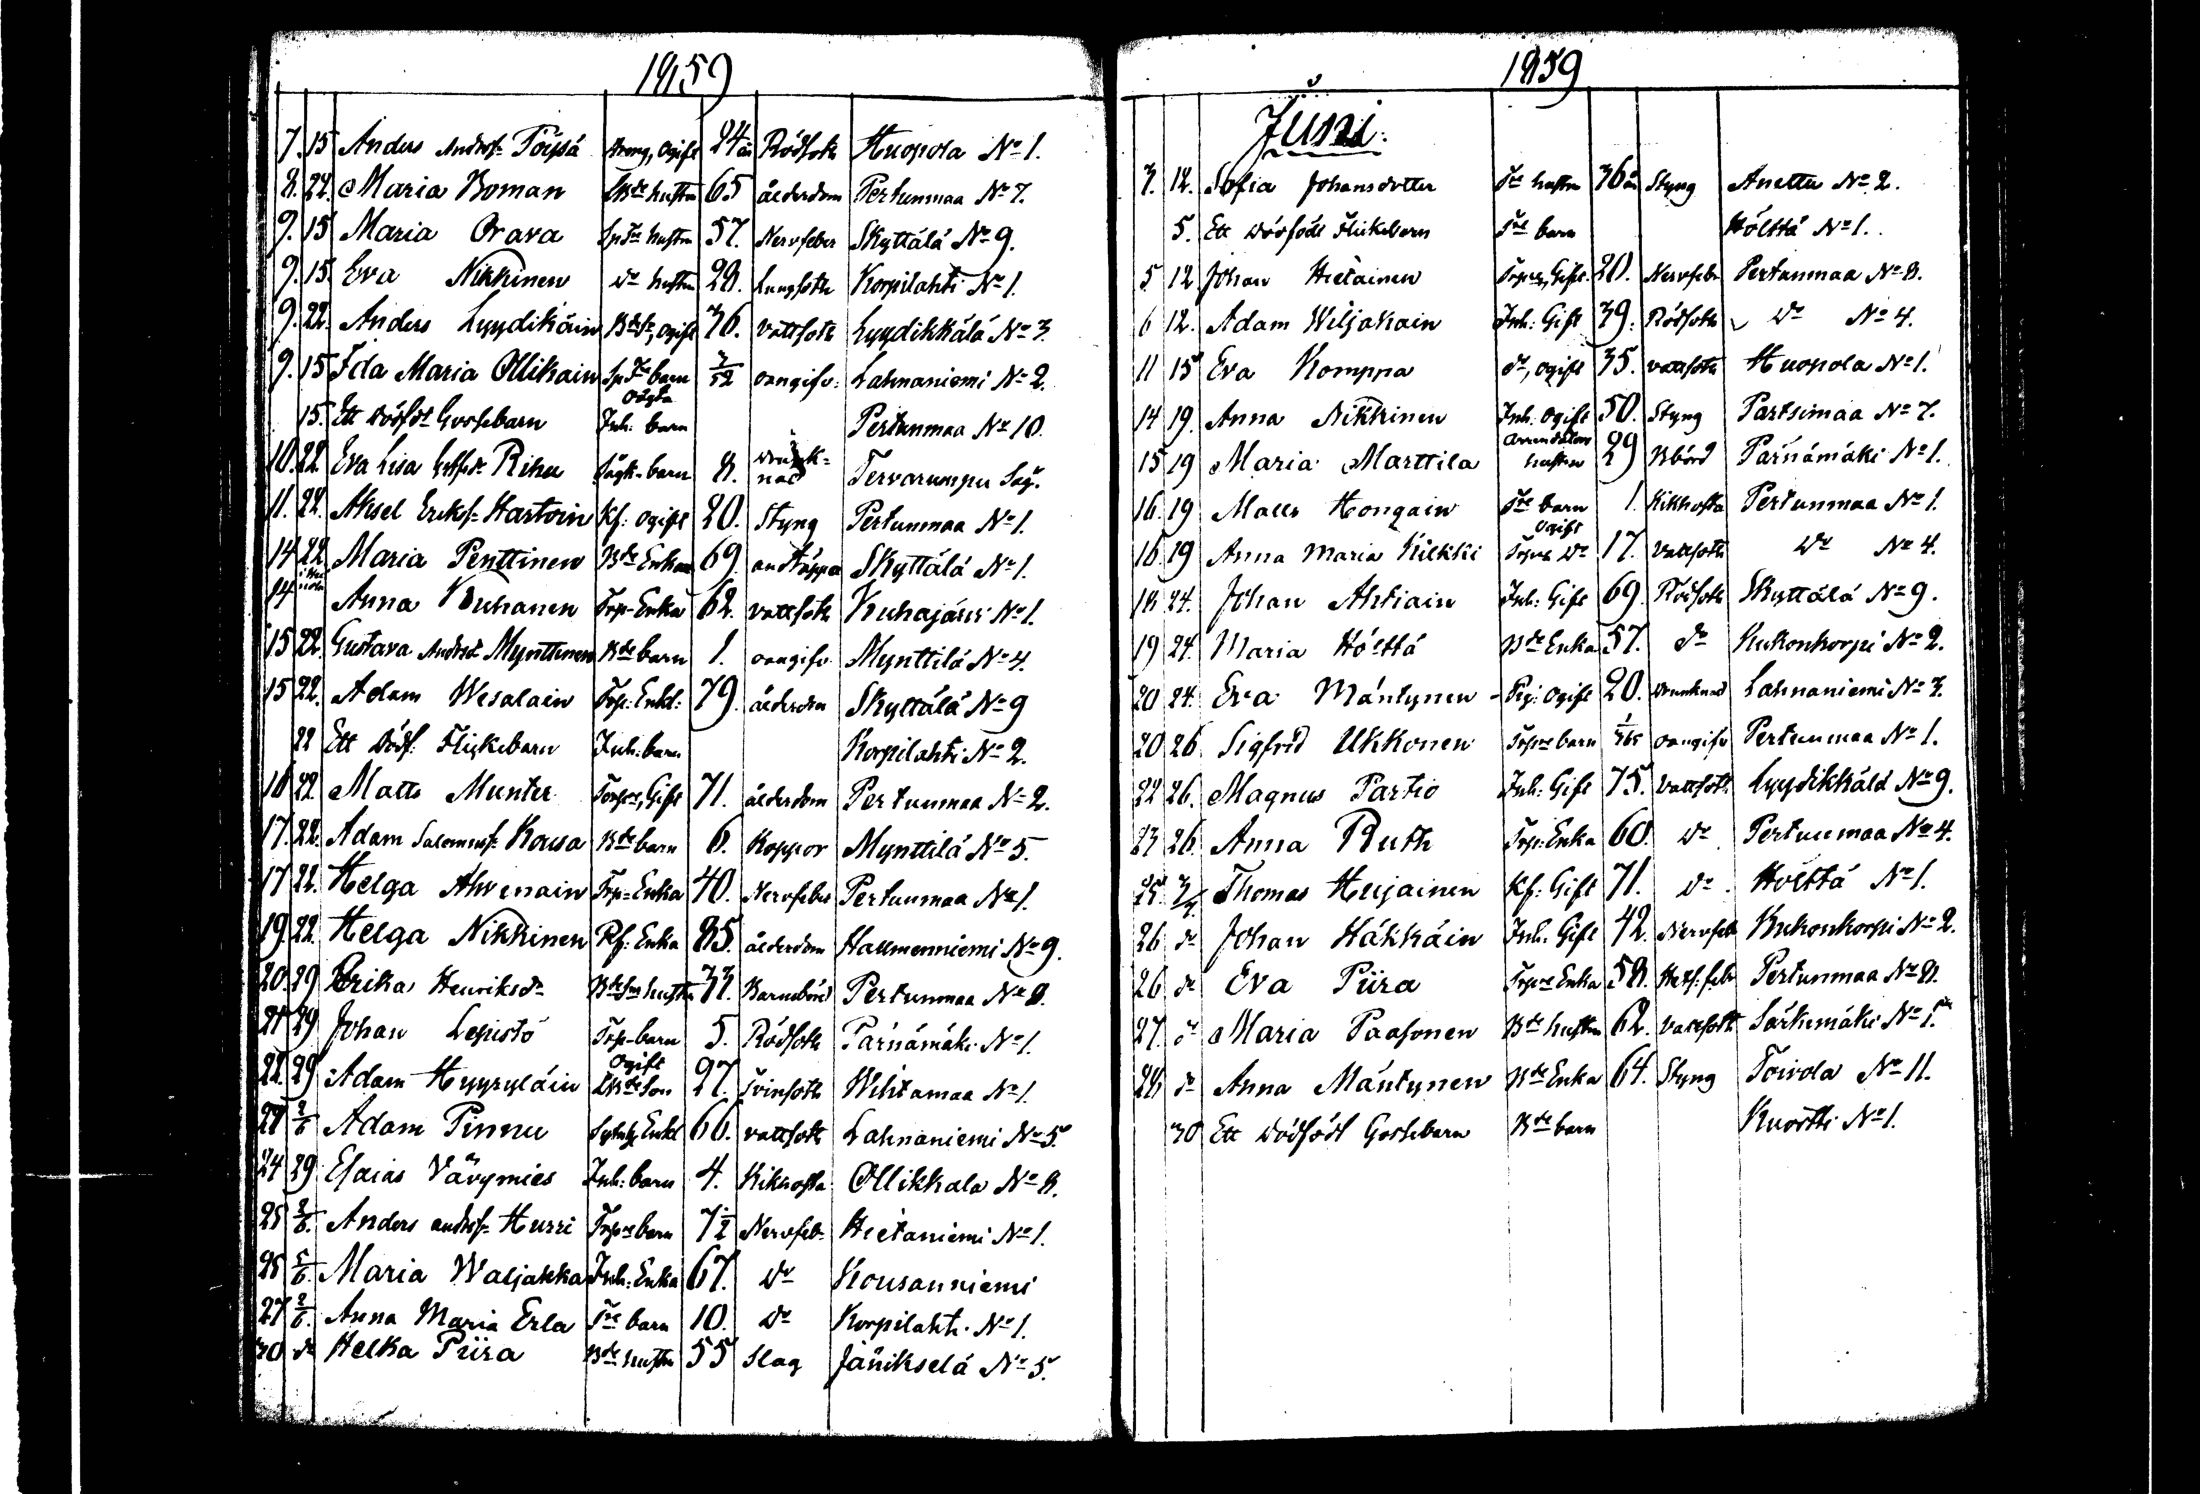 1859
7. 15 Anders Andersf. Pöyså dreng, ogift 24 år Rödsoth Huopola No 1.
8. 22. Maria Boman hustru 65 ålderdom Pertunmaa No 7.
9. 15 Maria Orava hustru 57. Nervfeber Skyttälä No 9.
9. 15. Eva Nikkinen do hustru 28. Lungsoth Korpilahti No 1.
9. 22. Anders Lyydikäin ogift 36. Vattsoth Lyydikkälä No 3.
9. 15 Ida Maria Ollikain barn 3/52 oangifv: Lahnaniemi No 2.
15. Ett dödfdt Gossebarn ogifta Inh: barn Pertunmaa No 10.
10. 22. Eva Lisa Rihu Sågk-barn 8. drunknad Tervarumpu Såg.
11. 22. Aksel Eriksf. Hartoin Kf: ogift 20. Styng Pertunmaa No 1.
14 22. Maria Penttinen Bde Enka 69. andtäppa Skyttälä No 1.
14 Anna Kuhanen Trp-Enka 62. vattsoth Kuhajärvi No 1.
15 22. Gustava Andersd. Mynttinen Bde barn 1. oangifv Mynttilä No 4.
15 22. Adam Wesalain Trp: Enkl: 79. ålderdom Skyttälä No 9
22 Ett dödf: Flickebarn Inh: barn Korpilahti No 2.
16 22 Matts Munter Torpre, Gift 71. ålderdom Pertunmaa No 2.
17. 22. Adam Salomonsf. Kousa Bde barn 6. Koppor Mynttilä No 5.
17 22. Helga Ahvenain Trp-Enka 40. Nervfeber Pertunmaa No 1.
19. 22. Helga Nikkinen Rf: Enka 85. ålderdom Hallmenniemi No 9.
20. 29 Erika Henriksdr hustru 37. Barnsbörd Pertunmaa No 8.
21 29 Johan Lepistö Trp-barn 5. Rödsoth Pärnämäki No 1.
22. 29 Adam Hyyryläin ogift Son 27. Tvinsoth Wihtamaa No 1.
24 2/6 Adam Pinnu Enkl 66. vattsoth Lahnaniemi No 5.
24 29 Esaias Vävymies Inh: barn 4. Kikhosta Ollikkala No 8.
25 2/6. Anders andersf. Hurri Trpre barn 7 1/2 Nervfeb. Hietaniemi No 1.
25 5/6. Maria Waljakka Inh: Enka 67. do Kousanniemi
27 2/6. Anna Maria Erla Tre barn 10. do Korpilaht. No 1.
30 do Helka Piira Bde hustru 55 Slag Jänikselä No 5.
1859
Juni.
3. 12. Sofia Johansdotter Tre hustru 36 år Styng Anettu No 2.
5. Ett dödfödt Flickebarn Tre barn Höltta No 1.
5. 12 Johan Hietainen Torpre, Gift. 20. Nervfebr Pertunmaa No 8.
6 12. Adam Wiljakain Inh: Gift 39. Rödsoth do No 4.
11 15 Eva Komppa do, ogift 35. vattsoth Huopola No 1.
14 19. Anna Nikkinen Inh. ogift 50. Styng Partsimaa No 7.
15 19 Maria Marttila Arrendators hustru 29 Bbörd Pärnämäki No 1.
16. 19 Matts Hongain Tre barn 1. Kikhosta Pertunmaa No 1.
16. 19 Anna Maria Kilkki ogift Torpre dr 17. Vattsoth do No 4.
18 24. Johan Ahtiain Inh: Gift 69. Rödsoth Skyttälä No 9.
19 24. Maria Hölttä Bde Enka 57. do Kukonkorpi No 2.
20 24. Eva Mäntynen Pig: ogift 20. drunknad Lahnaniemi No 3.
20 26. Sigfrid Ukkonen Torpre barn 1/365 oangifv Pertunmaa No 1.
22 26. Magnus Partio Inh: Gift 75. Vattsoth Lyydikkälä No 9.
23 26. Anna Ruth Trp: Enka 60. do Pertunmaa No 4.
25. 3/7. Thomas Heijainen Kf: Gift 71. do Hölttä No 1.
26 do Johan Häkkäin Inh. Gift 42. Nervfeb Kukonkorpi No 2.
26 do Eva Piira Torpre Enka 58. Hetf. febr Pertunmaa No 8.
27. do Maria Paasonen Bde hustru 62. Vattsoth Särkemäki No 1.
28 do Anna Mäntynen Bde Enka 64. Styng Toivola No 11.
30 Ett dödfödt Gossebarn Bde barn Kuortti No 1.